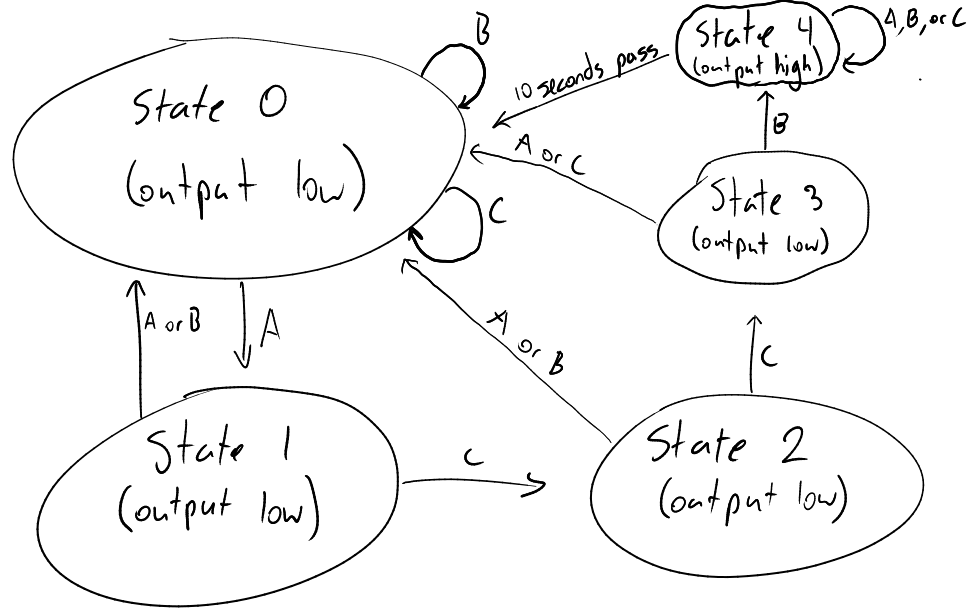 State 0
(output low)
B
C
10 seconds pass
State 4
(output high)
A, B, or C
B
A or C
State 3
(output low)
A or B
A
A or B
C
State 1
(output low)
C
State 2
(output low)